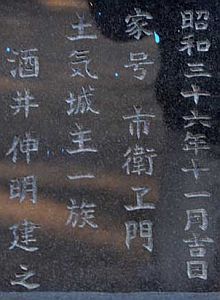 昭和三十六年十一月吉日
家号 市衛エ門
土気城主一族
酒井伸明建之